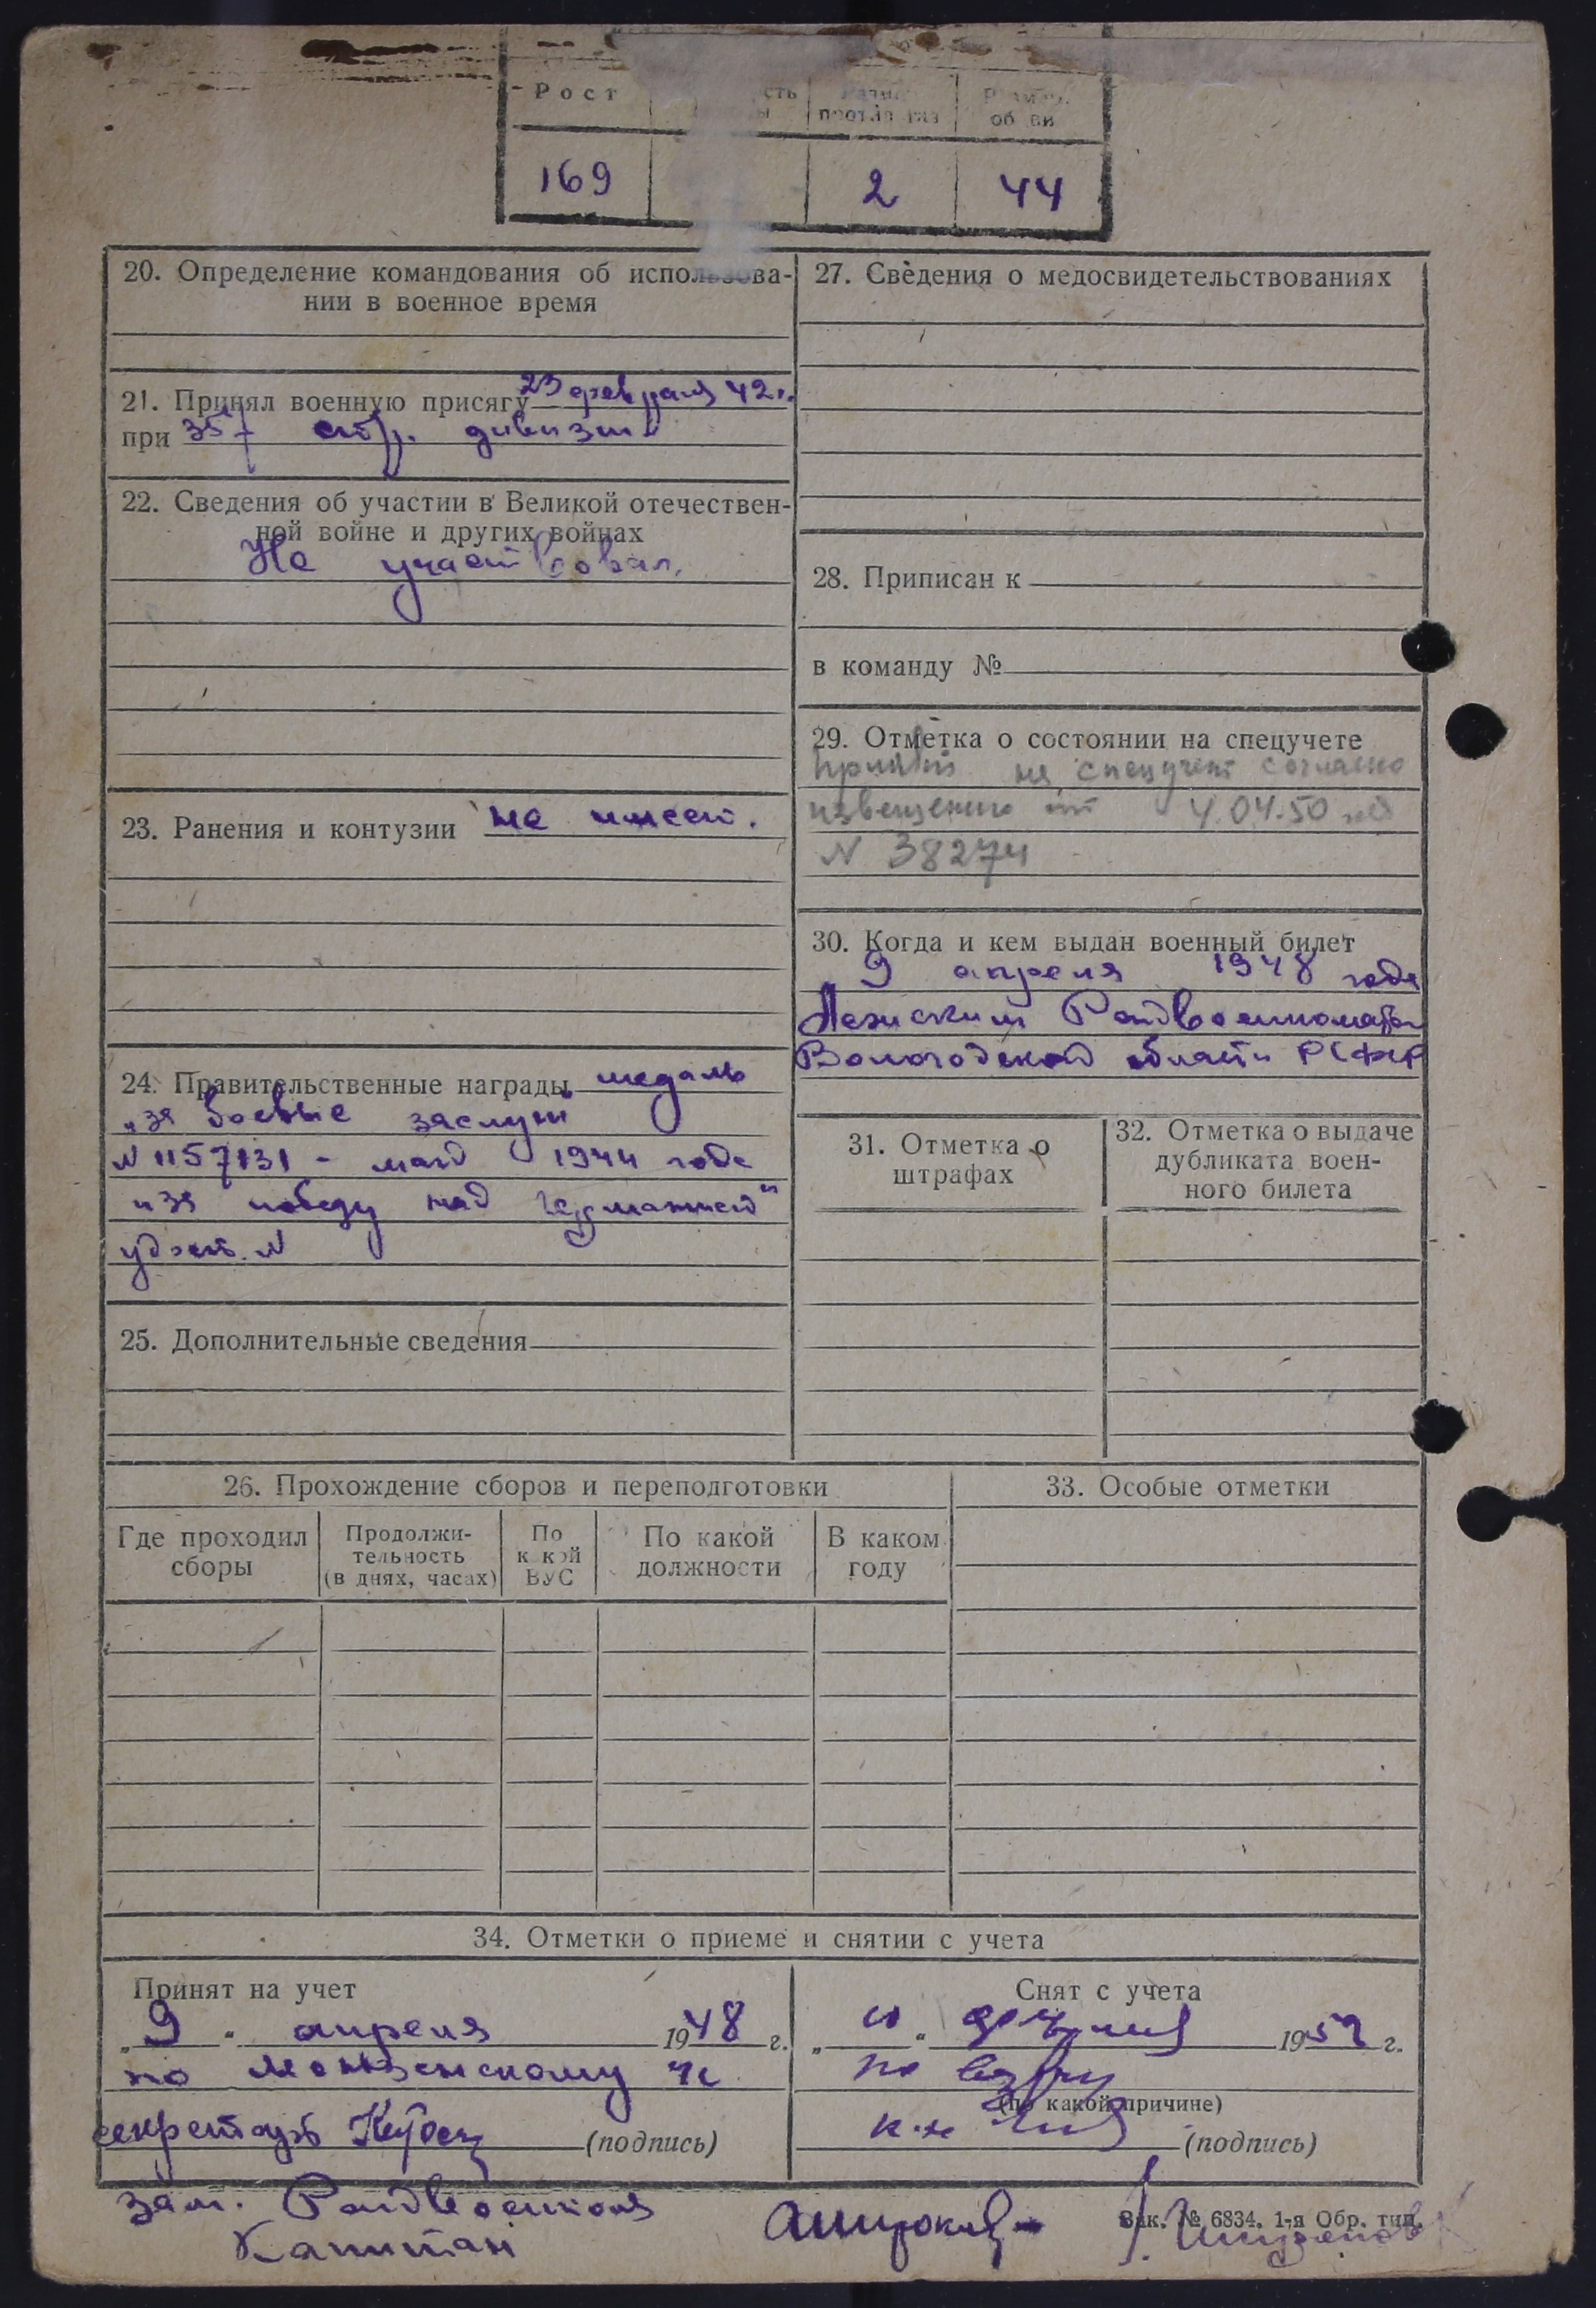 Рост
169
2
44
20. Определение командования об использова-
нии в военное время
21. Принял военную присягу 23 февраля 42 г.
при 357 стр. дивизии
22. Сведения об участии в Великой отечествен-
ной войне и других войнах
Не участвовал.
23. Ранения и контузии не имеет.
24. Правительственные награды медаль
„за боевые заслуги
N 1157131 - май 1944 года
"за победу над Германией"
удост. N
25. Дополнительные сведения
27. Сведения о медосвидетельствованиях
28. Приписан к
в команду №
29. Отметка о состоянии на спецучете
принят на спецучет согласно
извещению от 4.04.50
N 38274
30. Когда и кем выдан военный билет
„9 апреля 1948 года
Райвоенкоматом
Вологодской области РСФСР
31. Отметка о
штрафах
32. Отметка о выдаче
дубликата воен-
ного билета
26. Прохождение сборов и переподготовки
Где проходил
сборы
Продолжи-
тельность
(в днях, часах)
По
какой
ВУС
По какой
должности
В каком
году
33. Особые отметки
34. Отметки о приеме и снятии с учета
Принят на учет
„9" апреля 1948 г.
по
секретарь
(подпись)
Снят с учета
1952 г.
по
(по какой причине)
(подпись)
Зам. Райвоенкома
Капитан
Зак. № 6834. 1-я Обр. тип.